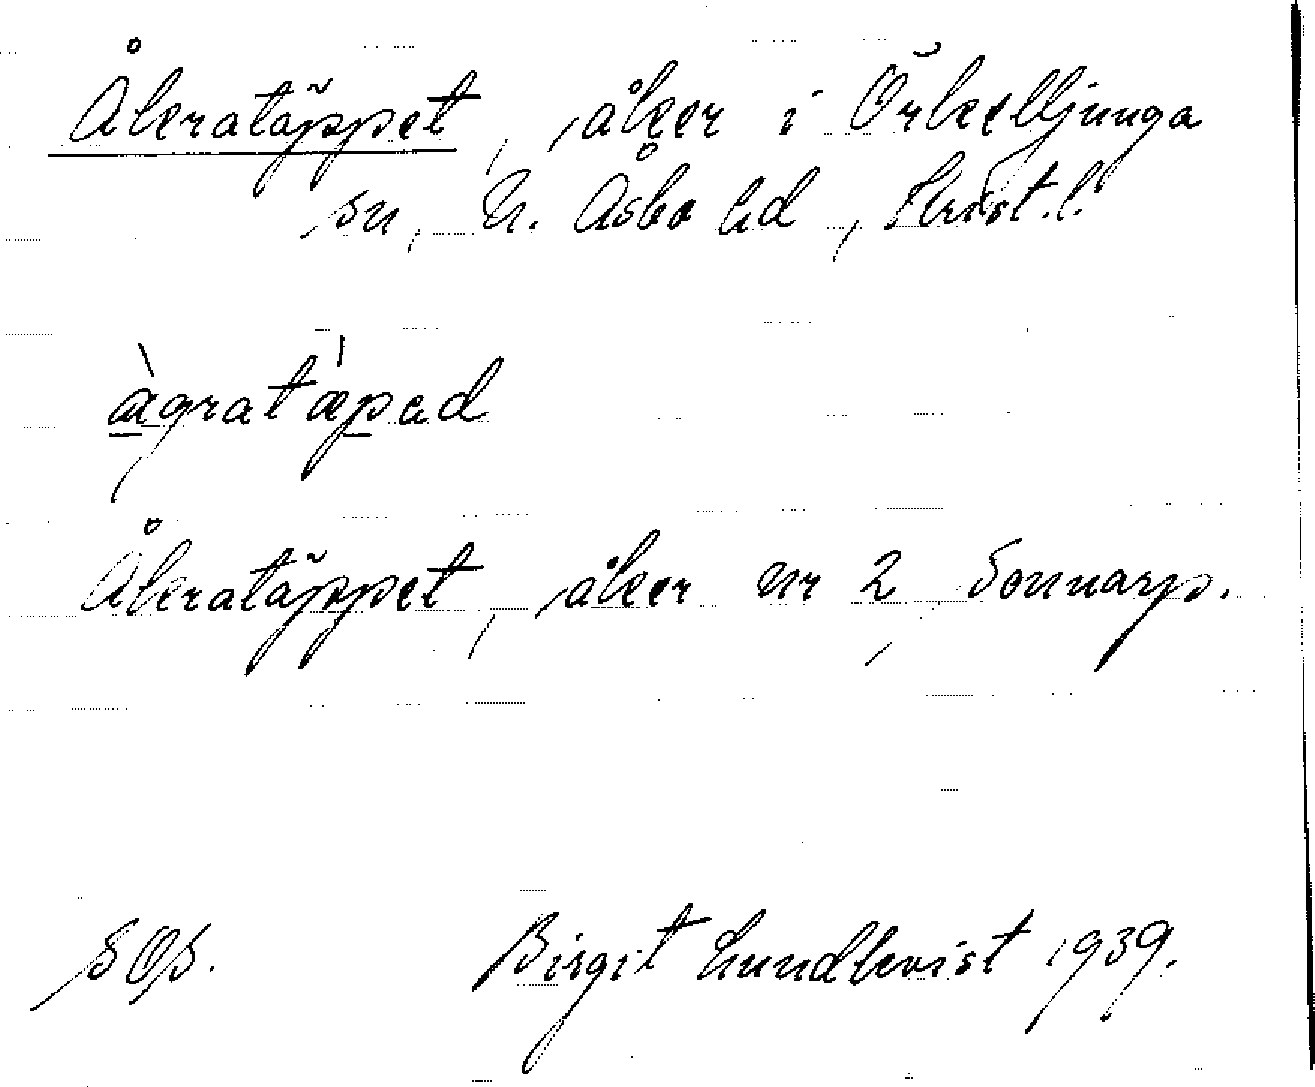 Åkratäppet, åker i Örkelljunga
sn, N. Åsbo hd, Krist. l.
Åkratäppet, åker nr 2, Sonnarp.
Birgit Lundkvist 1939.